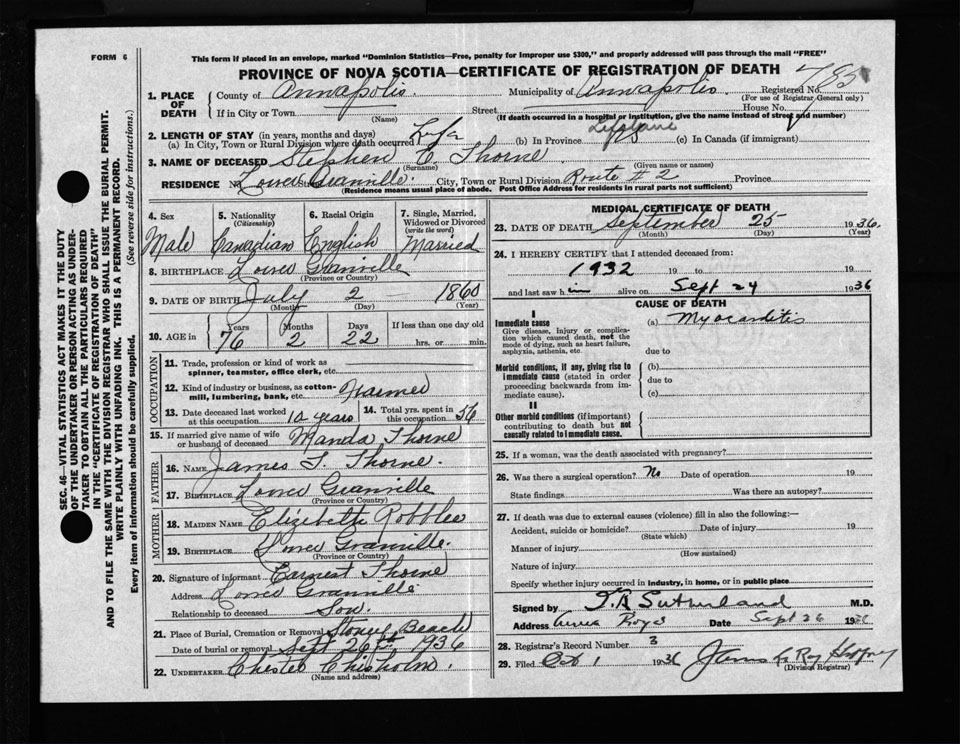 FORM 6
This form if placed in an envelope, marked "Dominion Statistics—Free, penalty for improper use $300," and properly addressed will pass through the mail "FREE"
PROVINCE OF NOVA SCOTIA—CERTIFICATE OF REGISTRATION OF DEATH
785
1. PLACE OF DEATH
County of Annapolis. Municipality of Annapolis. Registered No.
(For use of Registrar General only)
If in City or Town Street House No.
(Name) (If death occurred in a hospital or institution, give the name instead of street and number)
2. LENGTH OF STAY (in years, months and days)
(a) In City, Town or Rural Division where death occurred Life (b) In Province Lifetime (c) In Canada (if immigrant)
3. NAME OF DECEASED Stephen E. Thorne
(Surname) (Given name or names)
RESIDENCE No Lower Granville. City, Town or Rural Division Route #2 Province
(Residence means usual place of abode. Post Office Address for residents in rural parts not sufficient)
4. Sex Male
5. Nationality (Citizenship) Canadian
6. Racial Origin English
7. Single, Married, Widowed or Divorced (write the word) Married
8. BIRTHPLACE Lower Granville
(Province or Country)
9. DATE OF BIRTH July 2 1860
(Month) (Day) (Year)
10. AGE in Years 76 Months 2 Days 22 If less than one day old hrs. or min.
OCCUPATION
11. Trade, profession or kind of work as spinner, teamster, office clerk, etc.
12. Kind of industry or business, as cotton-mill, lumbering, bank, etc. Farmer
13. Date deceased last worked at this occupation 10 years
14. Total yrs. spent in this occupation 56
15. If married give name of wife or husband of deceased Manda Thorne
FATHER
16. NAME James T. Thorne.
17. BIRTHPLACE Lower Granville
(Province or Country)
MOTHER
18. MAIDEN NAME Elizabeth Robblee
19. BIRTHPLACE Lower Granville.
(Province or Country)
20. Signature of informant Earnest Thorne
Address Lower Granville
Relationship to deceased Son.
21. Place of Burial, Cremation or Removal Stoney Beach
Date of burial or removal Sept 26th 1936
22. UNDERTAKER Chester Chisholm.
(Name and address)
MEDICAL CERTIFICATE OF DEATH
23. DATE OF DEATH September 25 1936.
(Month) (Day) (Year)
24. I HEREBY CERTIFY that I attended deceased from:
1932 19 to 19
and last saw him alive on Sept 24 1936
CAUSE OF DEATH
I
Immediate cause
Give disease, injury or complication which caused death, not the mode of dying, such as heart failure, asphyxia, asthenia, etc.
(a) Myocarditis
due to
Morbid conditions, if any, giving rise to immediate cause (stated in order proceeding backwards from immediate cause).
(b)
due to
(c)
II
Other morbid conditions (if important) contributing to death but not causally related to immediate cause.
25. If a woman, was the death associated with pregnancy?
26. Was there a surgical operation? No Date of operation 19
State findings Was there an autopsy?
27. If death was due to external causes (violence) fill in also the following:—
Accident, suicide or homicide? Date of injury 19
(State which)
Manner of injury
(How sustained)
Nature of injury
Specify whether injury occurred in industry, in home, or in public place
Signed by Sutherland M.D.
Address Anna Royal Date Sept 26 1936
28. Registrar's Record Number 3
29. Filed Oct 1 1936 Roy
(Division Registrar)
SEC. 46—VITAL STATISTICS ACT MAKES IT THE DUTY
OF THE UNDERTAKER OR PERSON ACTING AS UNDER-
TAKER TO OBTAIN ALL THE PARTICULARS REQUIRED
IN THE "CERTIFICATE OF REGISTRATION OF DEATH"
AND TO FILE THE SAME WITH THE DIVISION REGISTRAR WHO SHALL ISSUE THE BURIAL PERMIT.
WRITE PLAINLY WITH UNFADING INK. THIS IS A PERMANENT RECORD.
Every item of information should be carefully supplied. (See reverse side for instructions.)